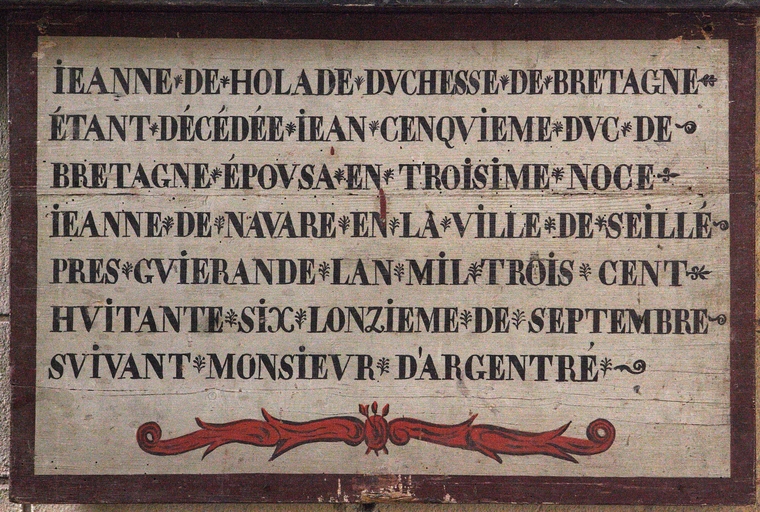 IEANNE DE HOLADE DVCHESSE DE BRETAGNE
ÉTANT DÉCÉDÉE IEAN CENQVIEME DVC DE
BRETAGNE ÉPOVSA EN TROISIME NOCE
IEANNE DE NAVARE EN LA VILLE DE SEILLÉ
PRES GVIERANDE LAN MIL TROIS CENT
HVITANTE SIX LONZIEME DE SEPTEMBRE
SVIVANT MONSIEVR D'ARGENTRÉ